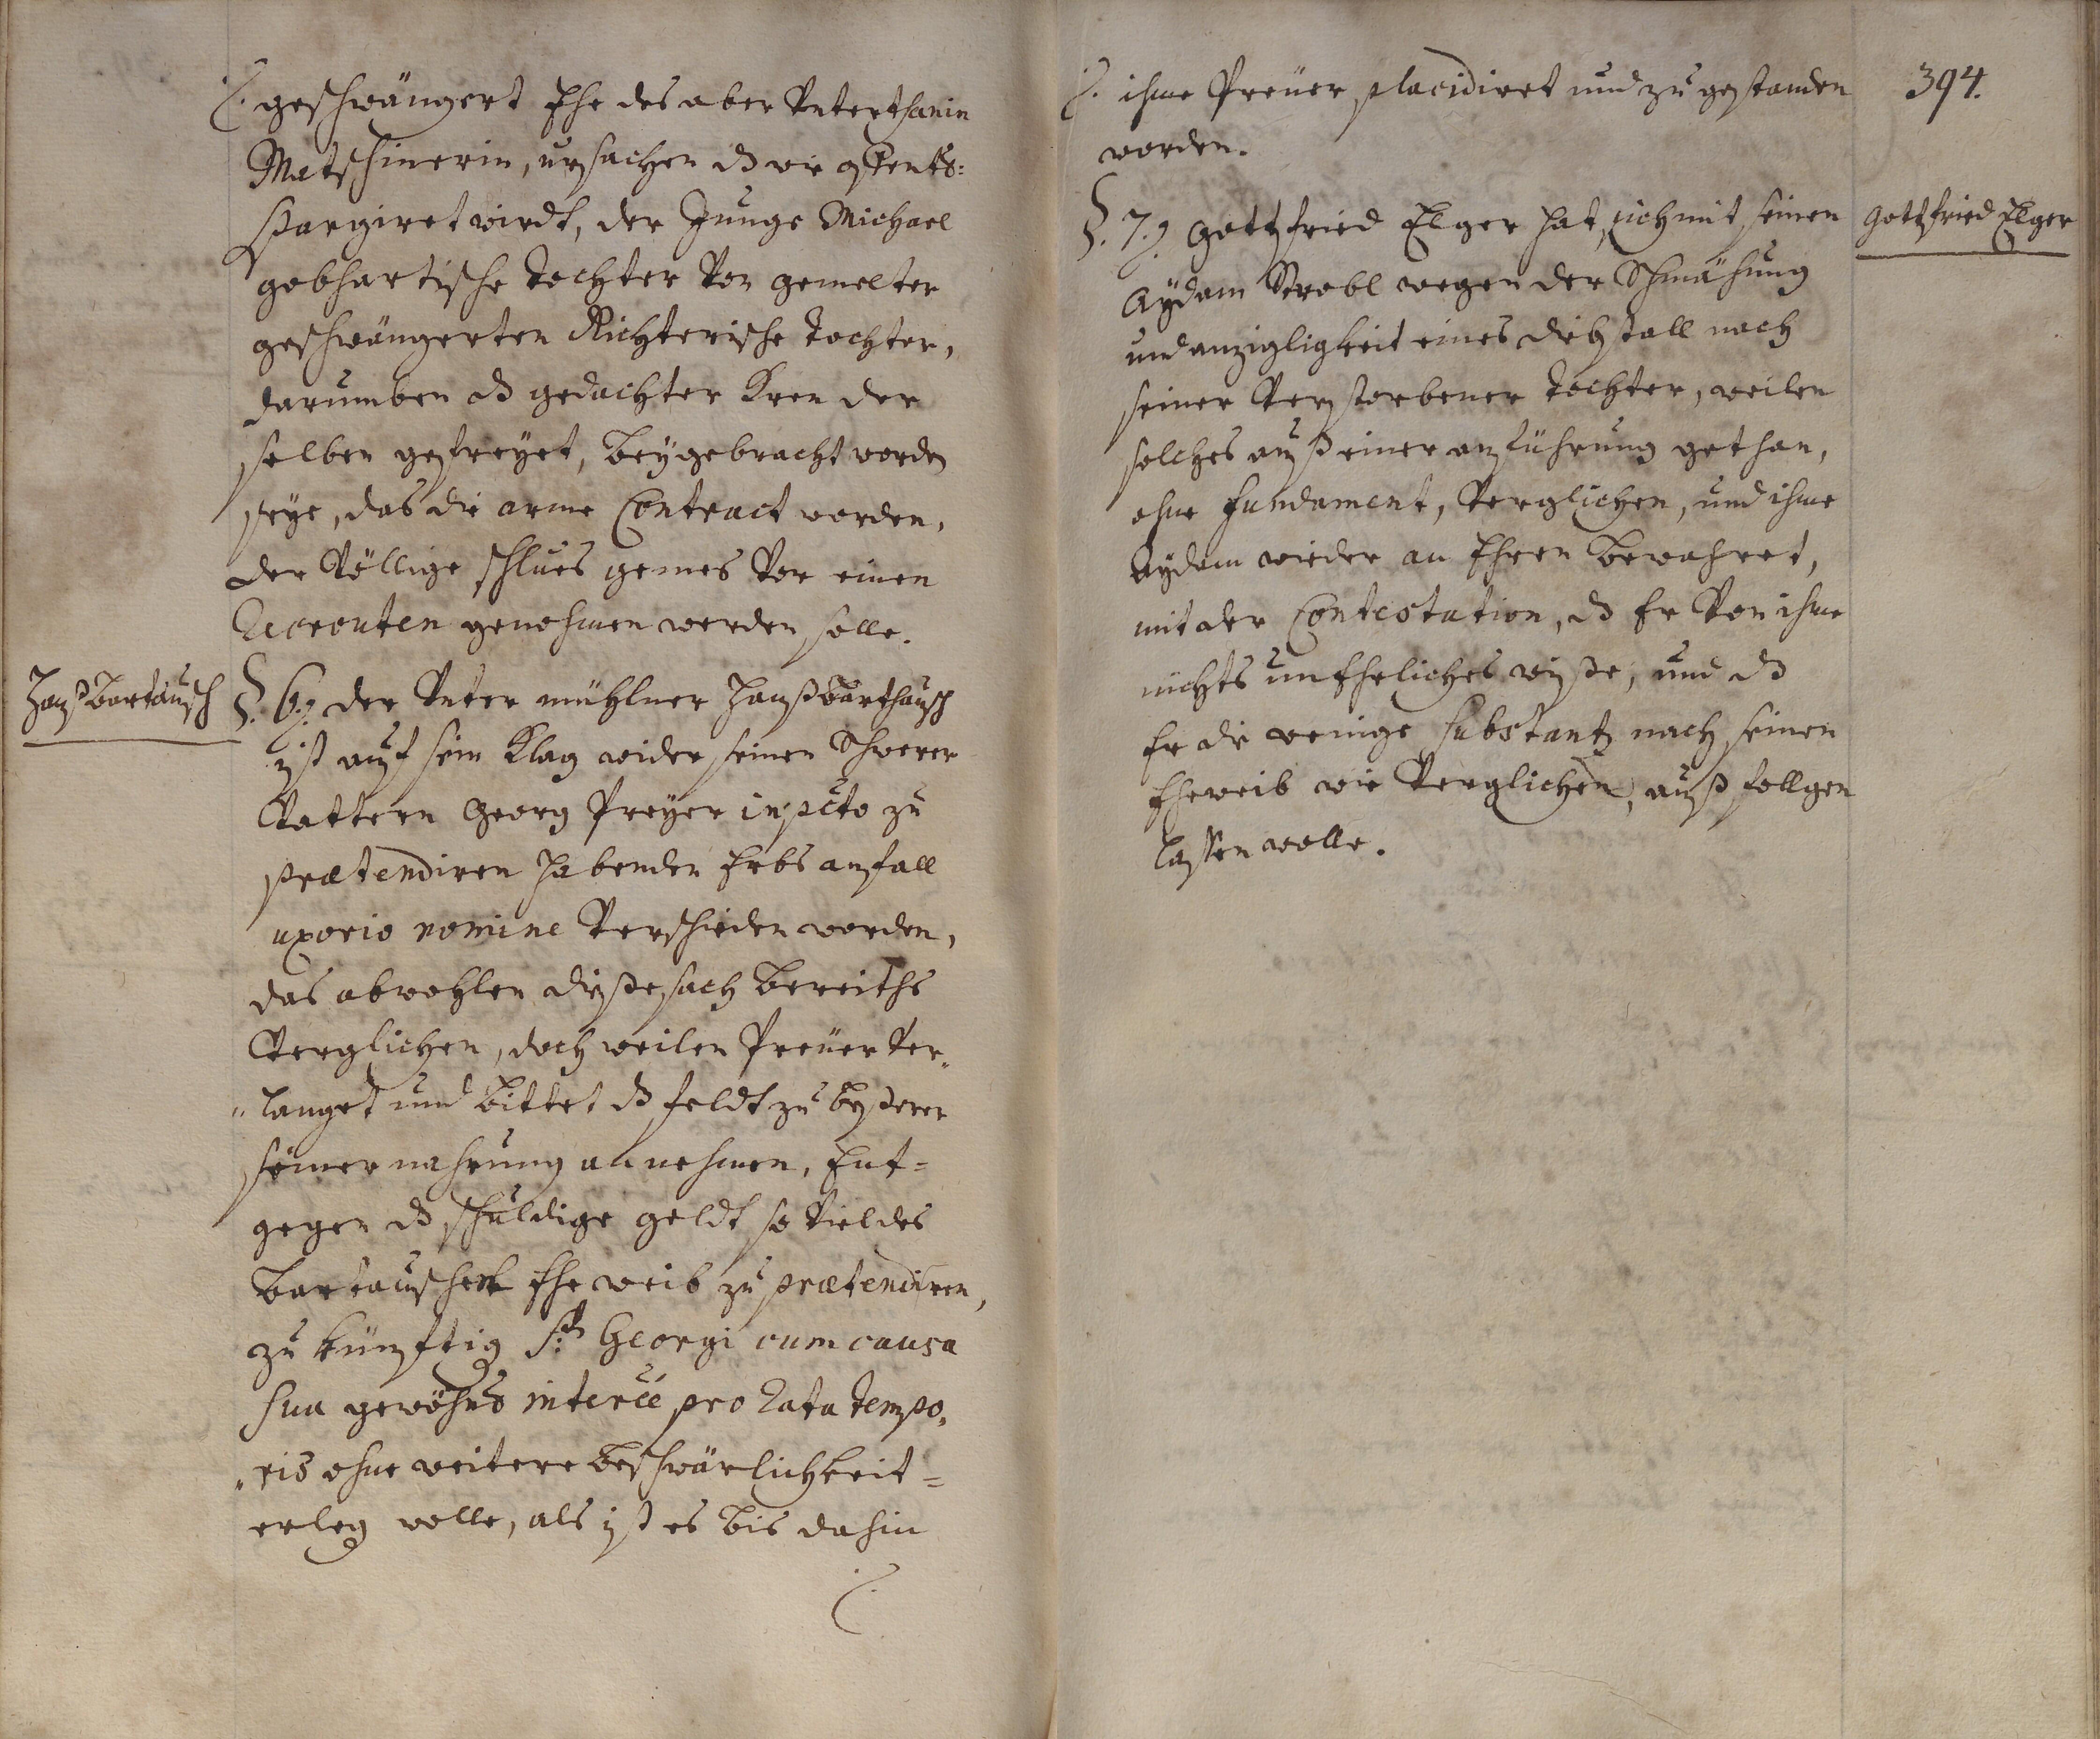 ./. geschwängert Ehe des aber Unterthanin
Matschinerin, ursachen dz wie
spargiret wirdt, der Junge Michael
gebhartische tochter von gemelter
geschwängerten Richterische tochter,
darumben dz gedachter Kren der
selben gefreyet, beygebracht worden
seye, das die arme Contract worden,
der völlige schlues gemes vor einen
genohmen werden solle.
Hanß Bartausch
§. 6. der Unter mühlner Hanß Barthausch
ist auf sein Klag wider seinen Schwerer
Vattern Georg Preyer in pcto zu
praetendiren habenden Erbs anfall
uxorio nomine Verschieden worden,
das obwohlen diße sach bereiths
Verglichen, doch weilen Preüer Ver„
„langet und bittet dz feldt zu beßerer
seiner nahrung annehmen, Ent=
gegen dz schuldige geldt so viel des
Bartauschen Ehe weib zu praetendiren,
zu künftig St. Georgi cum causa
sua gewöhns interee pro rata tempo„
„ris ohne weitere beschwärlichkeit=
erleg wolle, als ist es bis dahin
./.
394.
./. ihme Preüer placidiret und zu gestanden
worden.
Gottfried Elger
§. 7. Gottfried Elger hat sich mit seinen
Aydam Strobl wegen der Schmähung
und anzigligkeit eines diebstall nach
seiner Verstorbener tochter, weilen
solches auß einer anführung gethan,
ohne fundament, Verglichen, und ihme
Aydam wieder an Ehren bewahret,
mit der Contestation, dz Er von ihme
nichts unEhrliches wiße, und dz
Er die wenige substantz nach seinen
Eheweib wie Verglichen, auß follgen
lassen wolle.